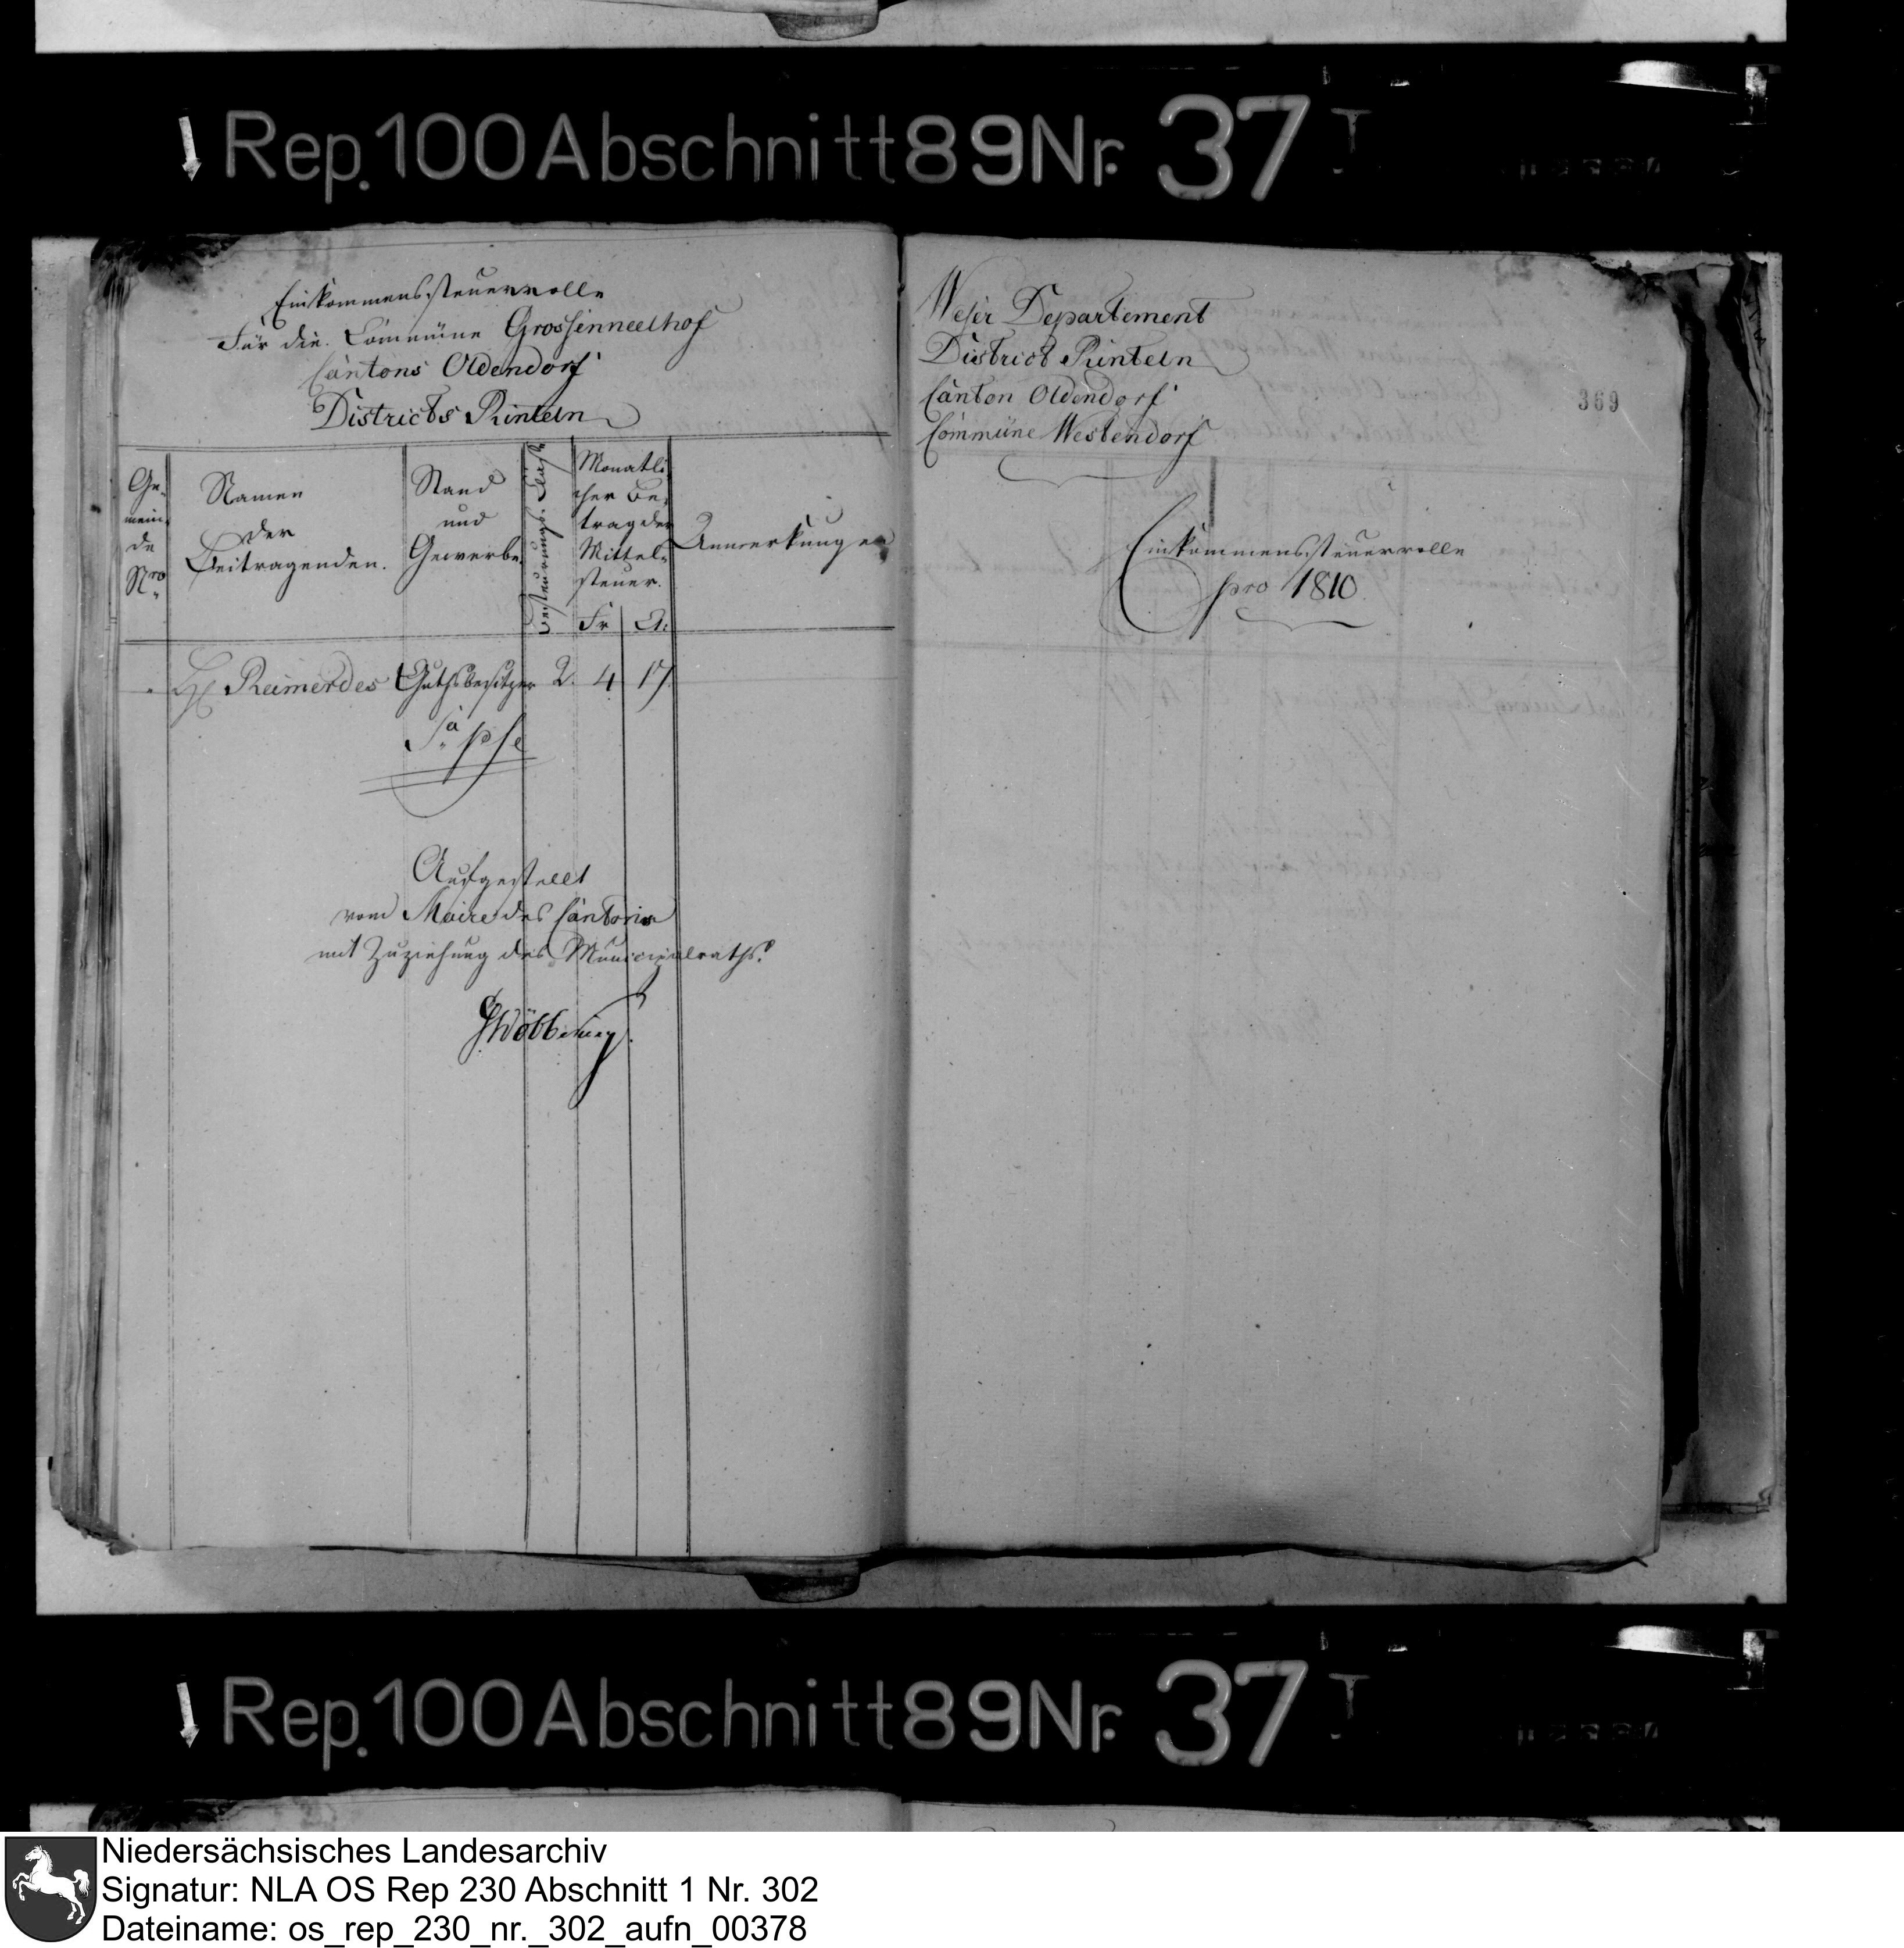 Rep. 100 Abschnitt 89 Nr. 37 I
Einkommenssteuerrolle
Für die Commüne Grossenneelhof
Cantons Oldendorf
Districts Rinteln
Ge-
mein-
de
Nro
Namen
der
Beitragenden.
Stand
und
Gewerbe.
Monatli
cher Be-
trag der
Mittel-
steuer.
Fr
Anmerkungen
Reimerdes Guthsbesitzer 2. 4 17
Aufgestellt
vom Maire des Cantons
mit Zuziehung des Municipalraths.
Weser Departement
District Rinteln
Canton Oldendorf
Commüne Westendorf
369
Einkommenssteuerrolle
pro 1810.
Rep. 100 Abschnitt 89 Nr. 37 I
Niedersächsisches Landesarchiv
Signatur: NLA OS Rep 230 Abschnitt 1 Nr. 302
Dateiname: os_rep_230_nr._302_aufn_00378